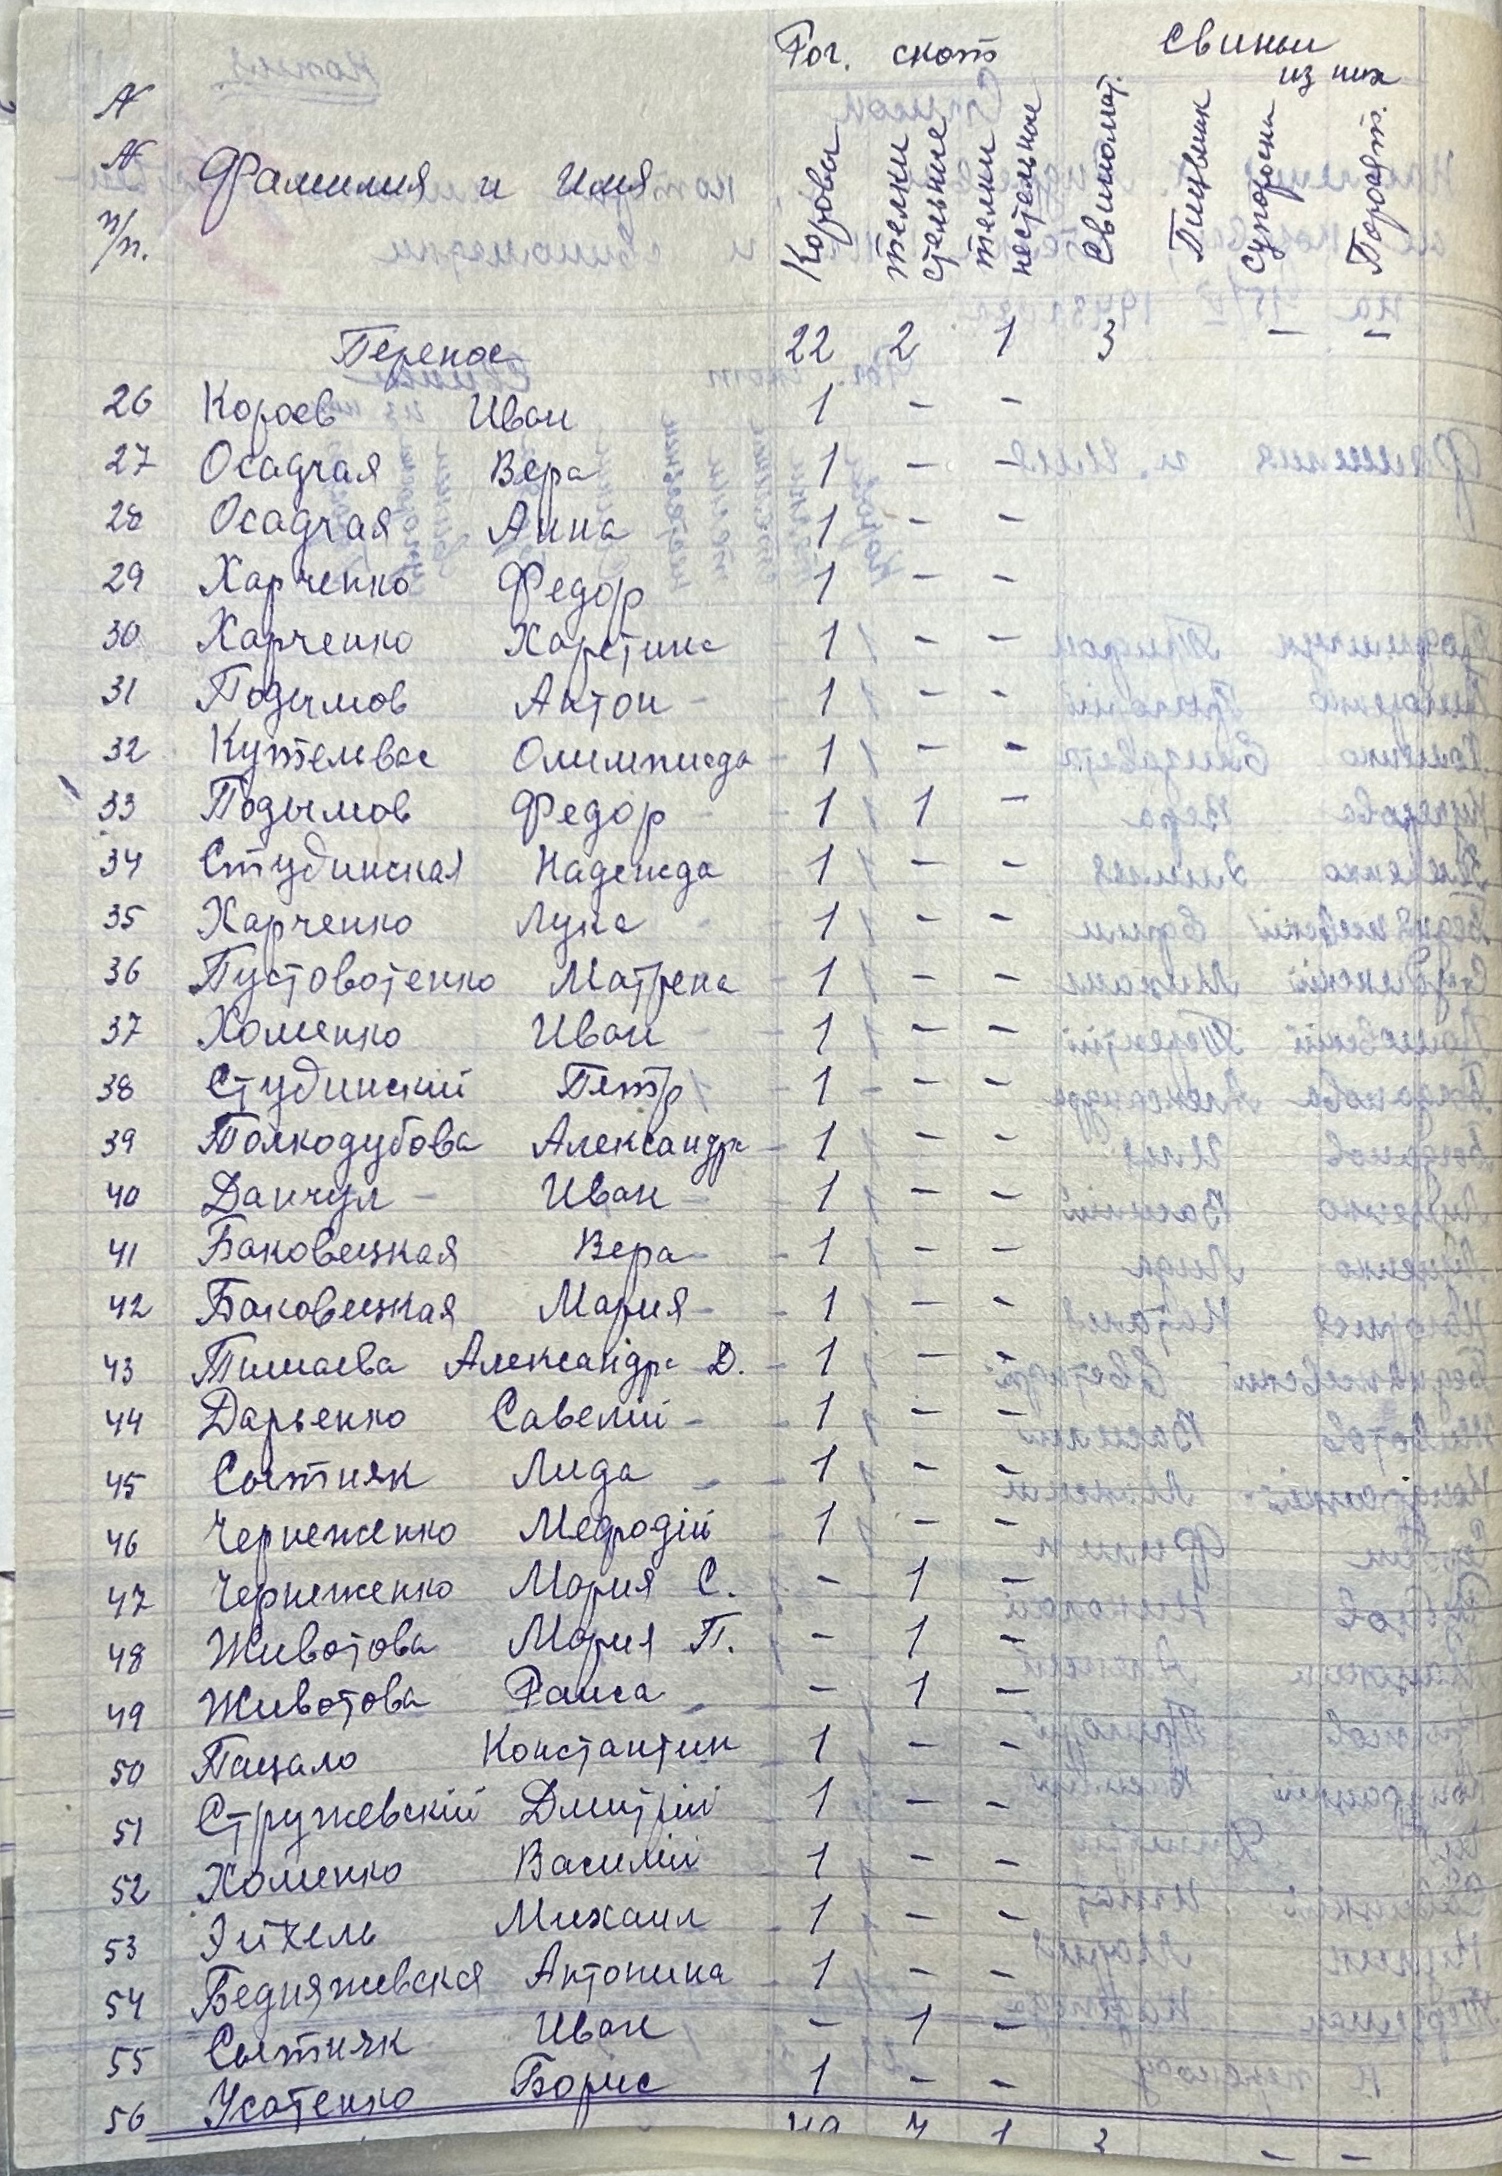 Рог. скот Свиньи
из них
N
N
п/п. Фамилия и имя Коровы телки стельные телки нестельные Свиномат. Супоросн Поросят.
Перенос 22 2 1 3 – –
26 Короев Иван 1 – –
27 Осадчая Вера 1 – –
28 Осадчая Анна 1 – –
29 Харченко Федор 1 – –
30 Харченко Харетина 1 – –
31 Подымов Антон 1 – –
32 Кутельвас Олимпиада 1 – –
33 Подымов Федор 1 1 –
34 Студинская Надежда 1 – –
35 Харченко Лука 1 – –
36 Пустовотенко Матрена 1 – –
37 Хоменко Иван 1 – –
38 Студинскій Петр 1 – –
39 Толкодубова Александра 1 – –
40 Данчул Иван 1 – –
41 Баковецкая Вера 1 – –
42 Баковецкая Мария 1 – –
43 Тимаева Александра Д. 1 – –
44 Дарьенко Савелій 1 – –
45 Сытник Лида 1 – –
46 Чернеженко Мефодій 1 – –
47 Чернеженко Мария С. – 1 –
48 Животова Мария П. – 1 –
49 Животова Раиса – 1 –
50 Пацало Константин 1 – –
51 Стружевскій Дмитрій 1 – –
52 Хоменко Василій 1 – –
53 Эйхель Михаил 1 – –
54 Бедняжевская Антонина 1 – –
55 Сытник Иван – 1 –
56 Усатенко Борис 1 – –
49 7 1 3 – –